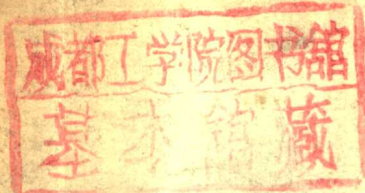 成都工学院图书館
基本館藏